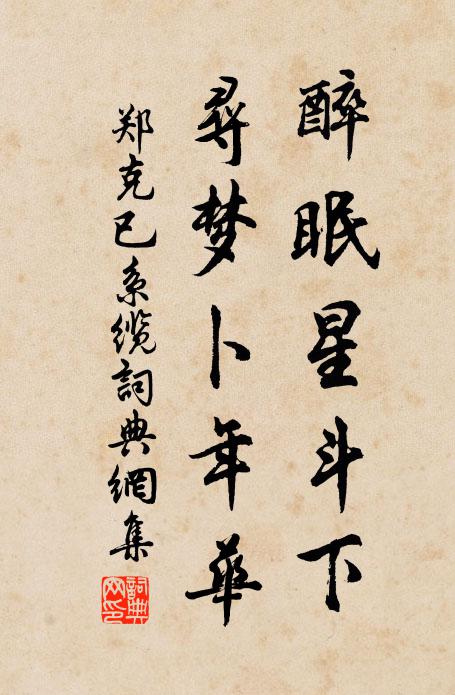 醉眠星斗下
尋梦卜年华
郑克己系缆詞典網集
詞典网印